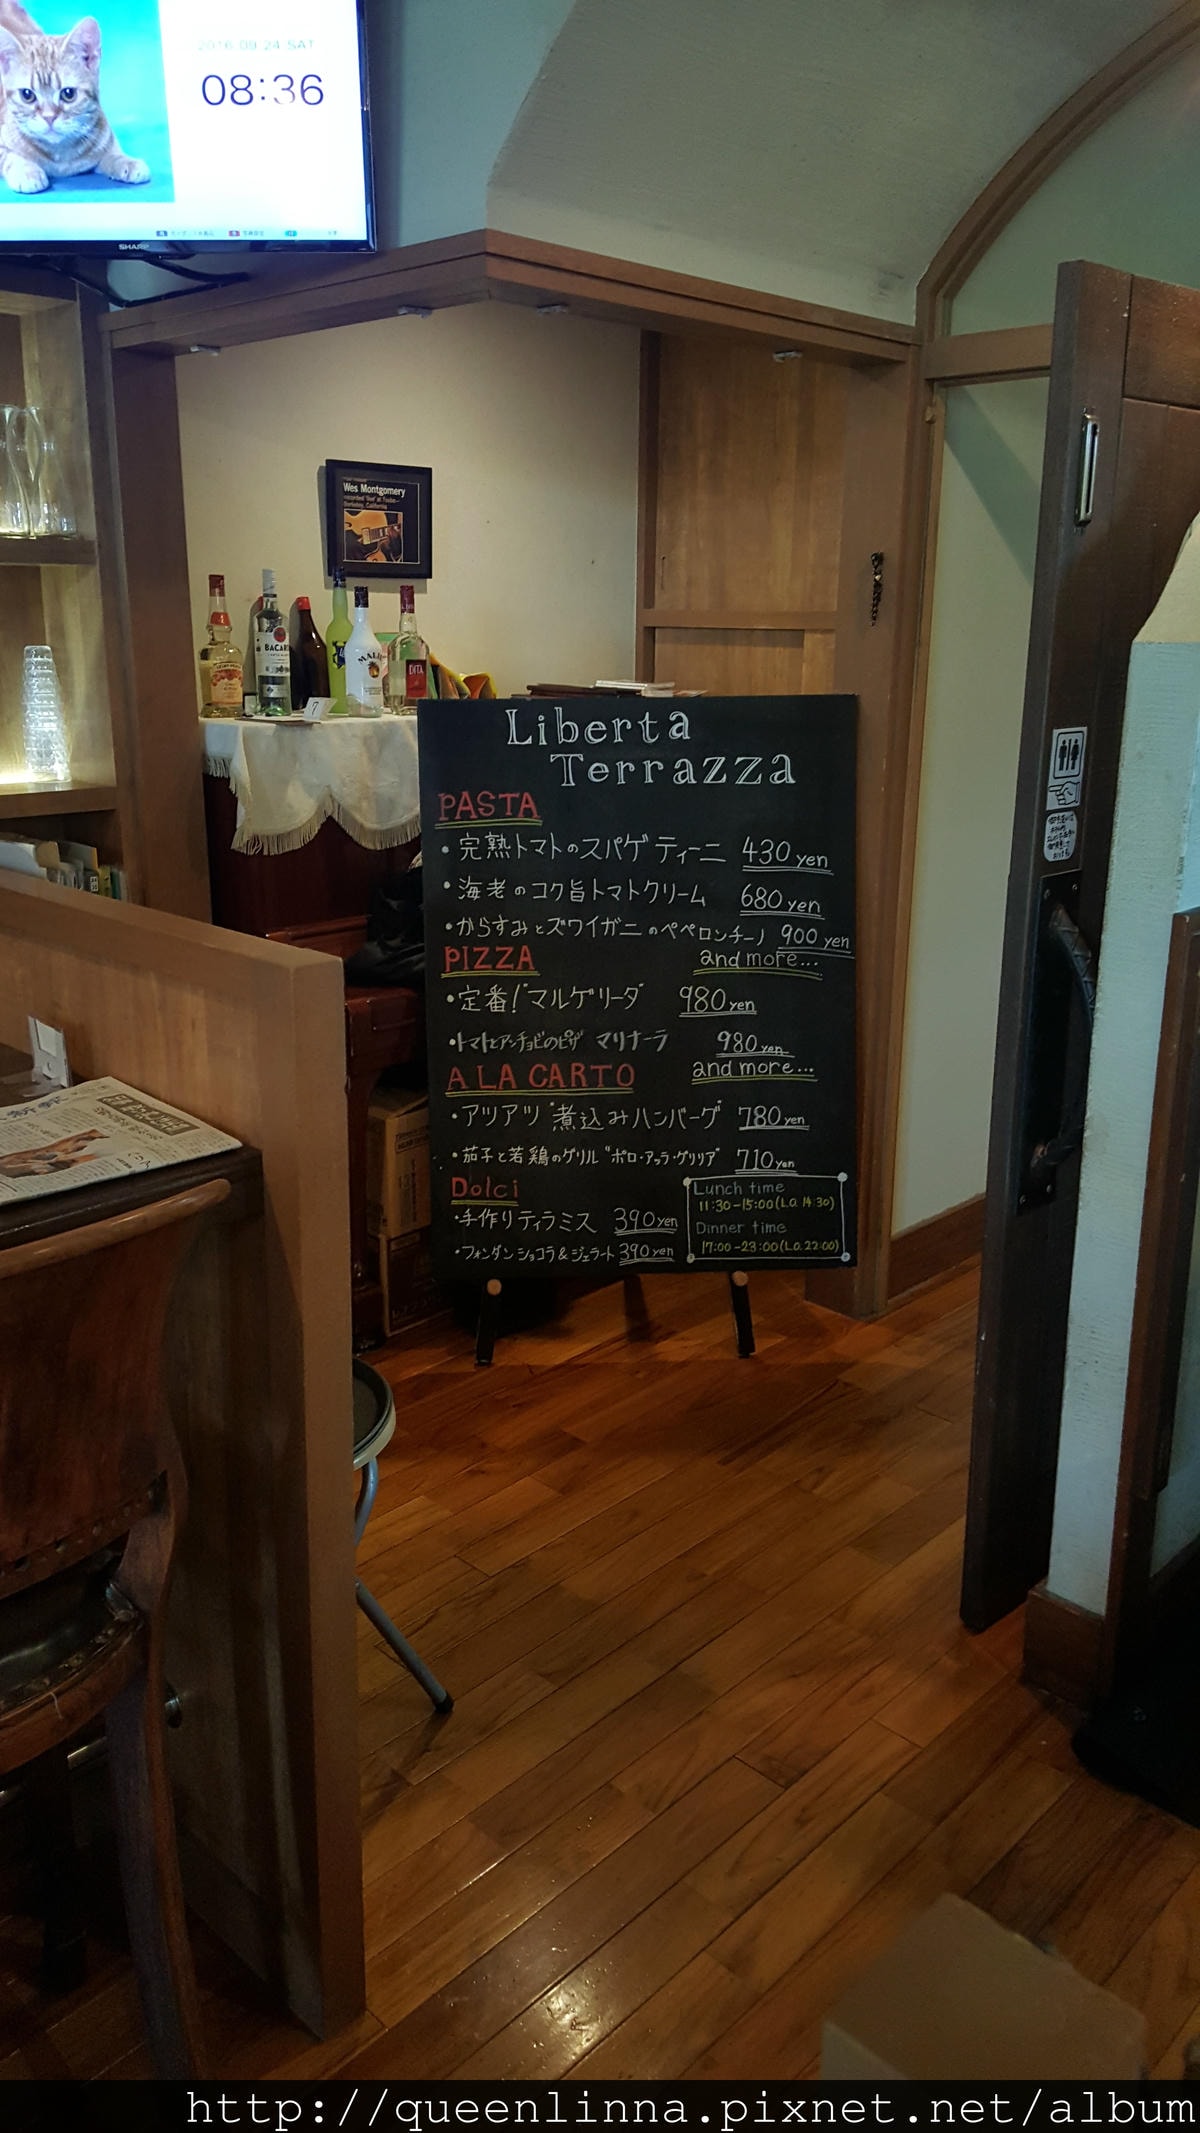 2016.09.24 SAT
08:36
SHARP
Wes Montgomery
BACARDI
MALIBU
DITA
7
Liberta
Terrazza
PASTA
・完熟トマトのスパゲティーニ 430 yen
・海老のコク旨トマトクリーム 680 yen
・からすみとズワイガニのペペロンチーノ 900 yen
and more...
PIZZA
・定番!"マルゲリータ" 980 yen
・トマトとアンチョビのピザ マリナーラ 980 yen
and more...
A LA CARTO
・アツアツ"煮込みハンバーグ" 780 yen
・茄子と若鶏のグリル "ポロ・アッラ・グリリア" 710 yen
Dolci
・手作りティラミス 390 yen
・フォンダンショコラ&ジェラート 390 yen
Lunch time
11:30-15:00 (L.O. 14:30)
Dinner time
17:00-23:00 (L.O. 22:00)
http://queenlinna.pixnet.net/album